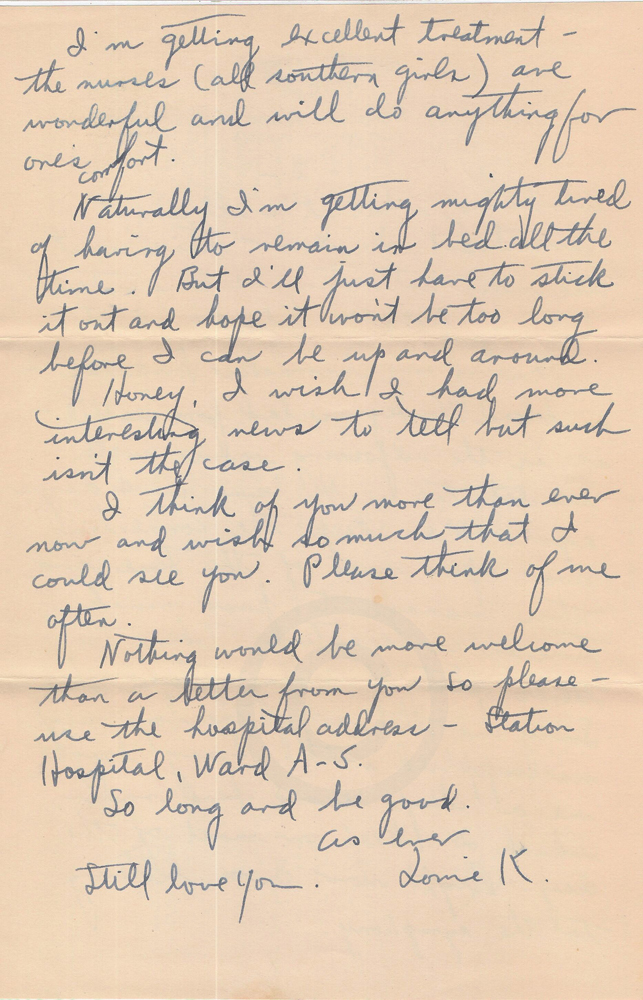 I'm getting excellent treatment -
the nurses (all southern girls) are
wonderful and will do anything for
one's comfort.
Naturally I'm getting mighty tired
of having to remain in bed all the
time. But I'll just have to stick
it out and hope it won't be too long
before I can be up and around.
Honey, I wish I had more
interesting news to tell but such
isn't the case.
I think of you more than ever
now and wish so much that I
could see you. Please think of me
often.
Nothing would be more welcome
than a letter from you so please -
use the hospital address - Station
Hospital, Ward A-5.
So long and be good.
As ever
Still love you. K.